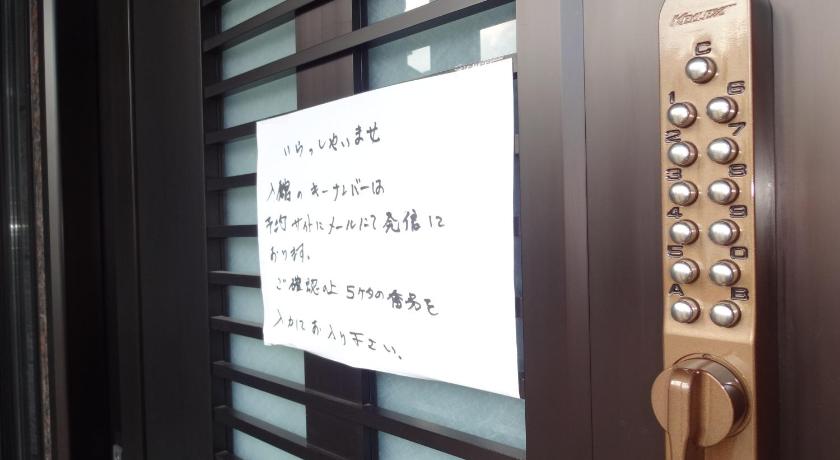 いらっしゃいませ
入館のキーナンバーは
予約サイトにメールにて発信して
おります。
ご確認の上5ケタの番号を
入力してお入り下さい。
C
1 6
2 7
3 8
4 9
5 0
A B